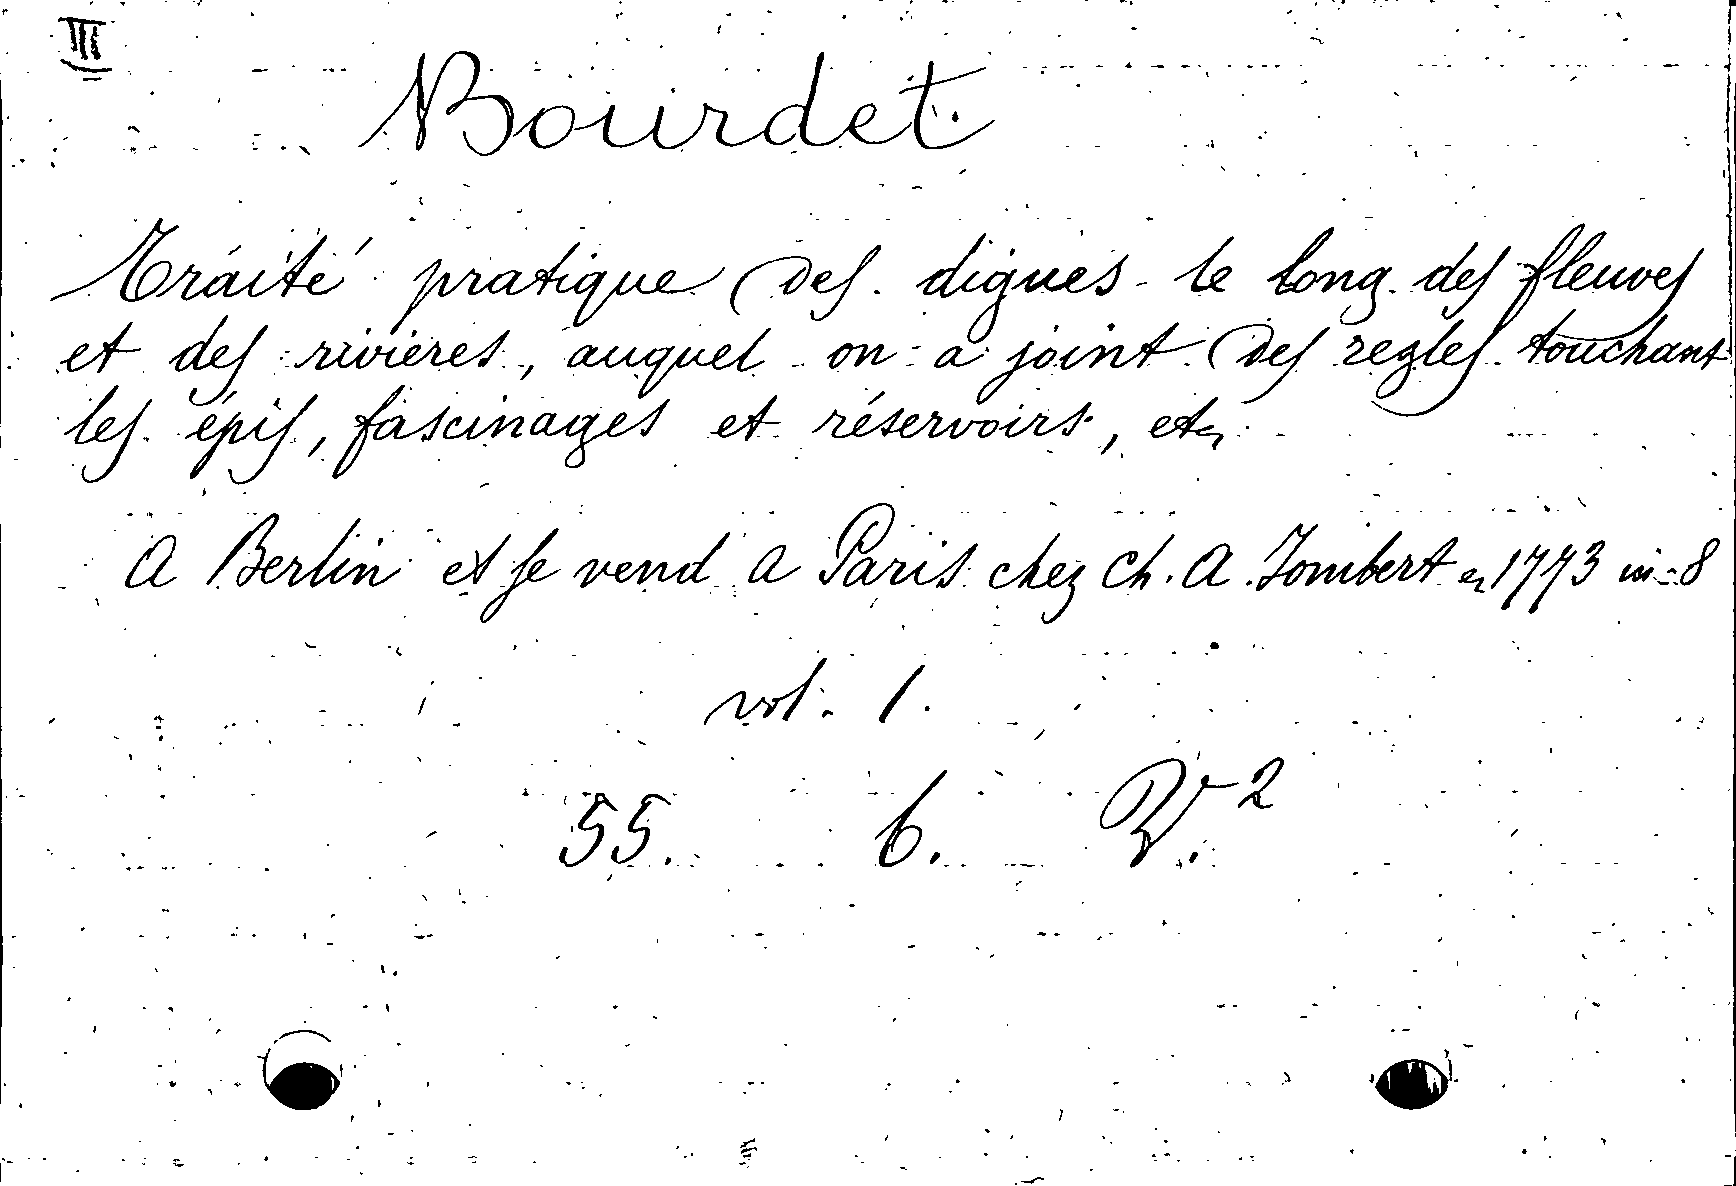 III
Bourdet
Traité pratique des digues le long des fleuves
et des rivieres, auquel on a joint des regles touchant
les épis, fascinages et réservoirs, etc
A Berlin et se vend a Paris chez Ch. A. Jombert en 1773 in-8
vol. 1.
55. 6. V.2